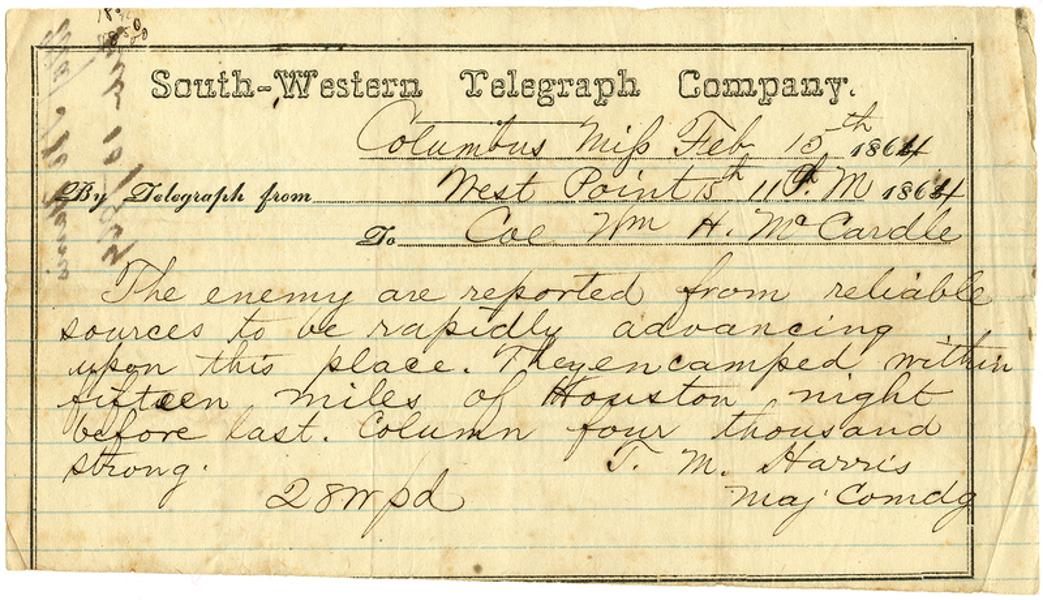 South-Western Telegraph Company.
Columbus Miss Feb 15th 1864
By Telegraph from West Point 15th 11 P. M 1864
To Col Wm H. McCardle
The enemy are reported from reliable
sources to be rapidly advancing
upon this place. They encamped within
fifteen miles of Houston night
before last. Column four thousand
strong.
T. M. Harris
28 W pd
Maj Comdg